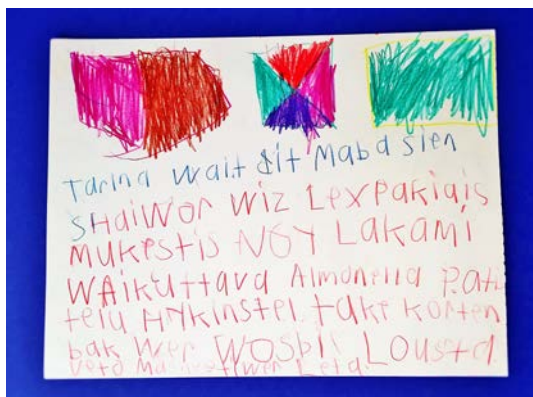 Tarina wait dit Maba sien
SHaiwor wiz Lexpakiais
mukestis NOY LakAmi
WAikuttava Almonella P.ati
telu HNkinstel take korten
bak wer WOsbir Loustd.
veto